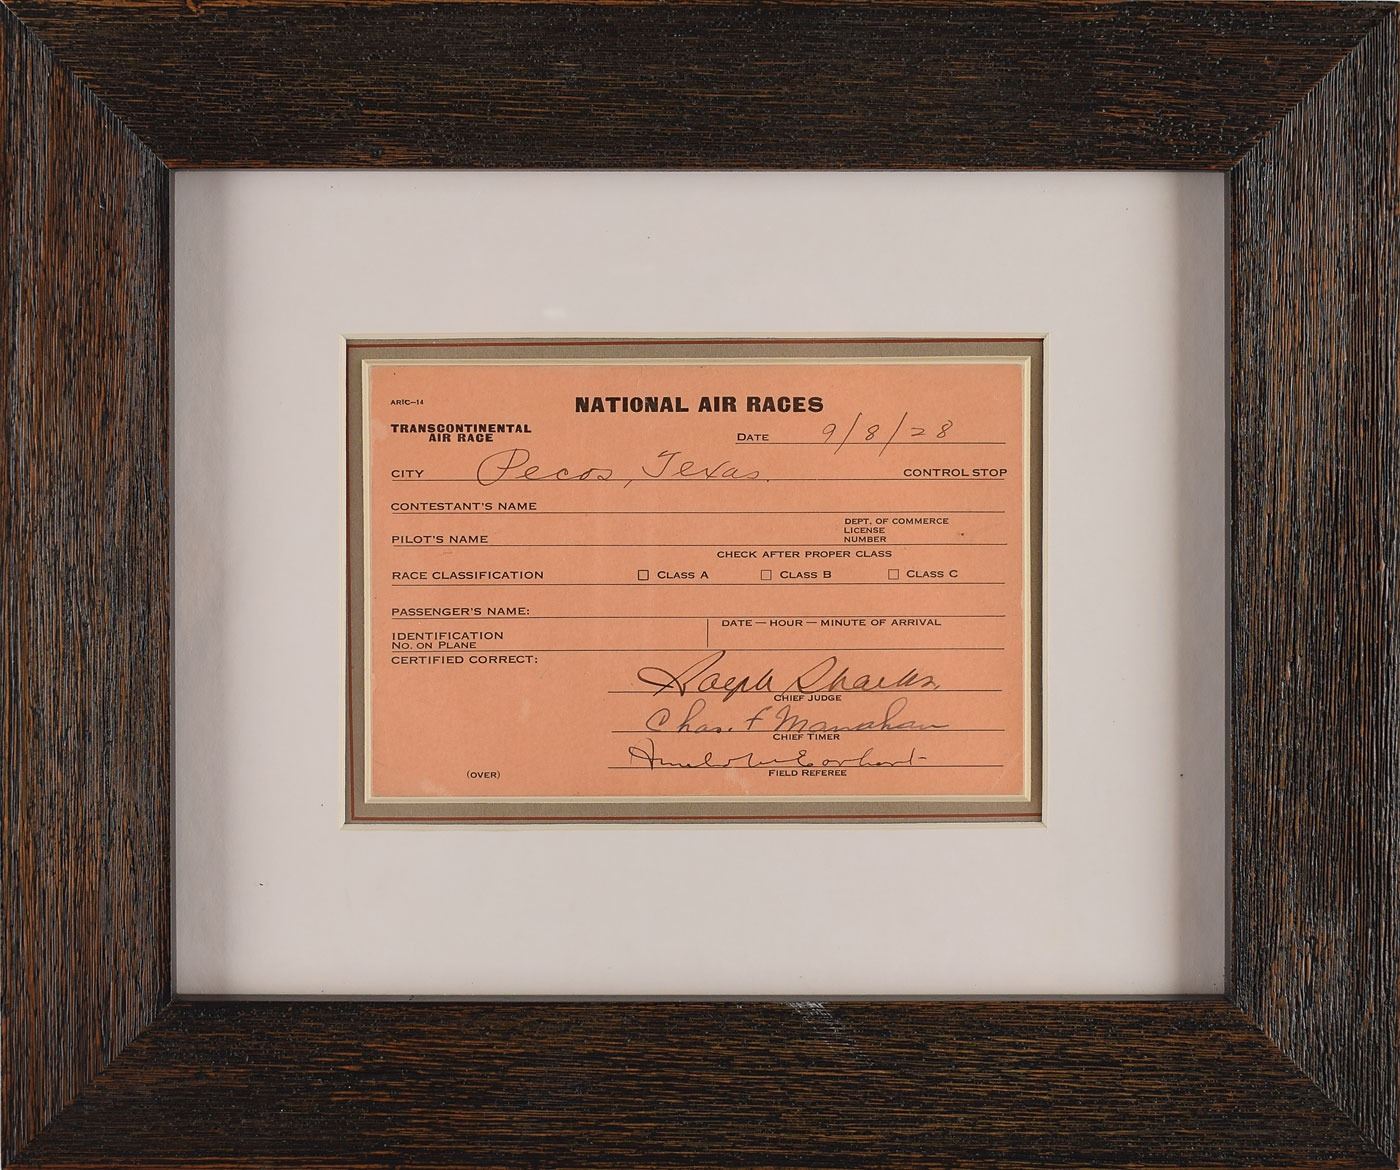 ARIC-14
NATIONAL AIR RACES
TRANSCONTINENTAL
AIR RACE
DATE 9/8/28
CITY Pecos, Texas. CONTROL STOP
CONTESTANT'S NAME
PILOT'S NAME
DEPT. OF COMMERCE
LICENSE
NUMBER
CHECK AFTER PROPER CLASS
RACE CLASSIFICATION ☐ CLASS A ☐ CLASS B ☐ CLASS C
PASSENGER'S NAME:
IDENTIFICATION
NO. ON PLANE
DATE — HOUR — MINUTE OF ARRIVAL
CERTIFIED CORRECT:
Ralph
CHIEF JUDGE
Chas. F Manahan
CHIEF TIMER
Amelia Earhart
FIELD REFEREE
(OVER)